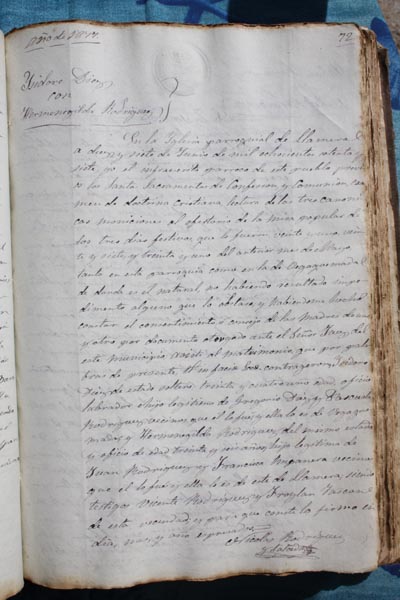 Año de 1877.
72
Ysidoro Diez
con
Hermenegilda Rodriguez
En la Yglesia parroquial de Llamera
a diez y siete de Junio de mil ochocientos setenta y
siete yo el infrascrito parroco de este pueblo previ
os los Santos Sacramentos de Confesion y Comunion exa
men de doctrina cristiana lectura de las tres canoni
cas moniciones al ofertorio de la misa popular de
los tres dias festivos que lo fueron veinte y uno vein
te y siete y treinta y uno del anterior mes de Mayo
tanto en esta parroquia como en la de Vegaquemada
de donde es el natural no habiendo resultado impe
dimento alguno que lo obstara y habiendome hecho
constar el consentimiento y consejo de las madres de uno
y otro por documento otorgado ante el Señor Juez del
este Municipio asisti al matrimonio que por pala
bras de presente
Diez, de estado soltero treinta y cuatro años edad, oficio
labrador e hijo legitimo de Gregorio Diez y Pascuala
Rodriguez, vecinos que el lo fue y ella lo es de Vegaque
mada y Hermenegilda Rodriguez del mismo estado
y oficio de edad treinta y seis años, hija legitima de
Juan Rodriguez y Francisca Amparera vecinos
que el lo fue y ella lo es de este de Llamera, siendo
testigos Vicente Rodriguez y Froylan Bascan
de esta vecindad y para que conste la firmo en
dia, mes y año expresados
Nicolas Rodriguez